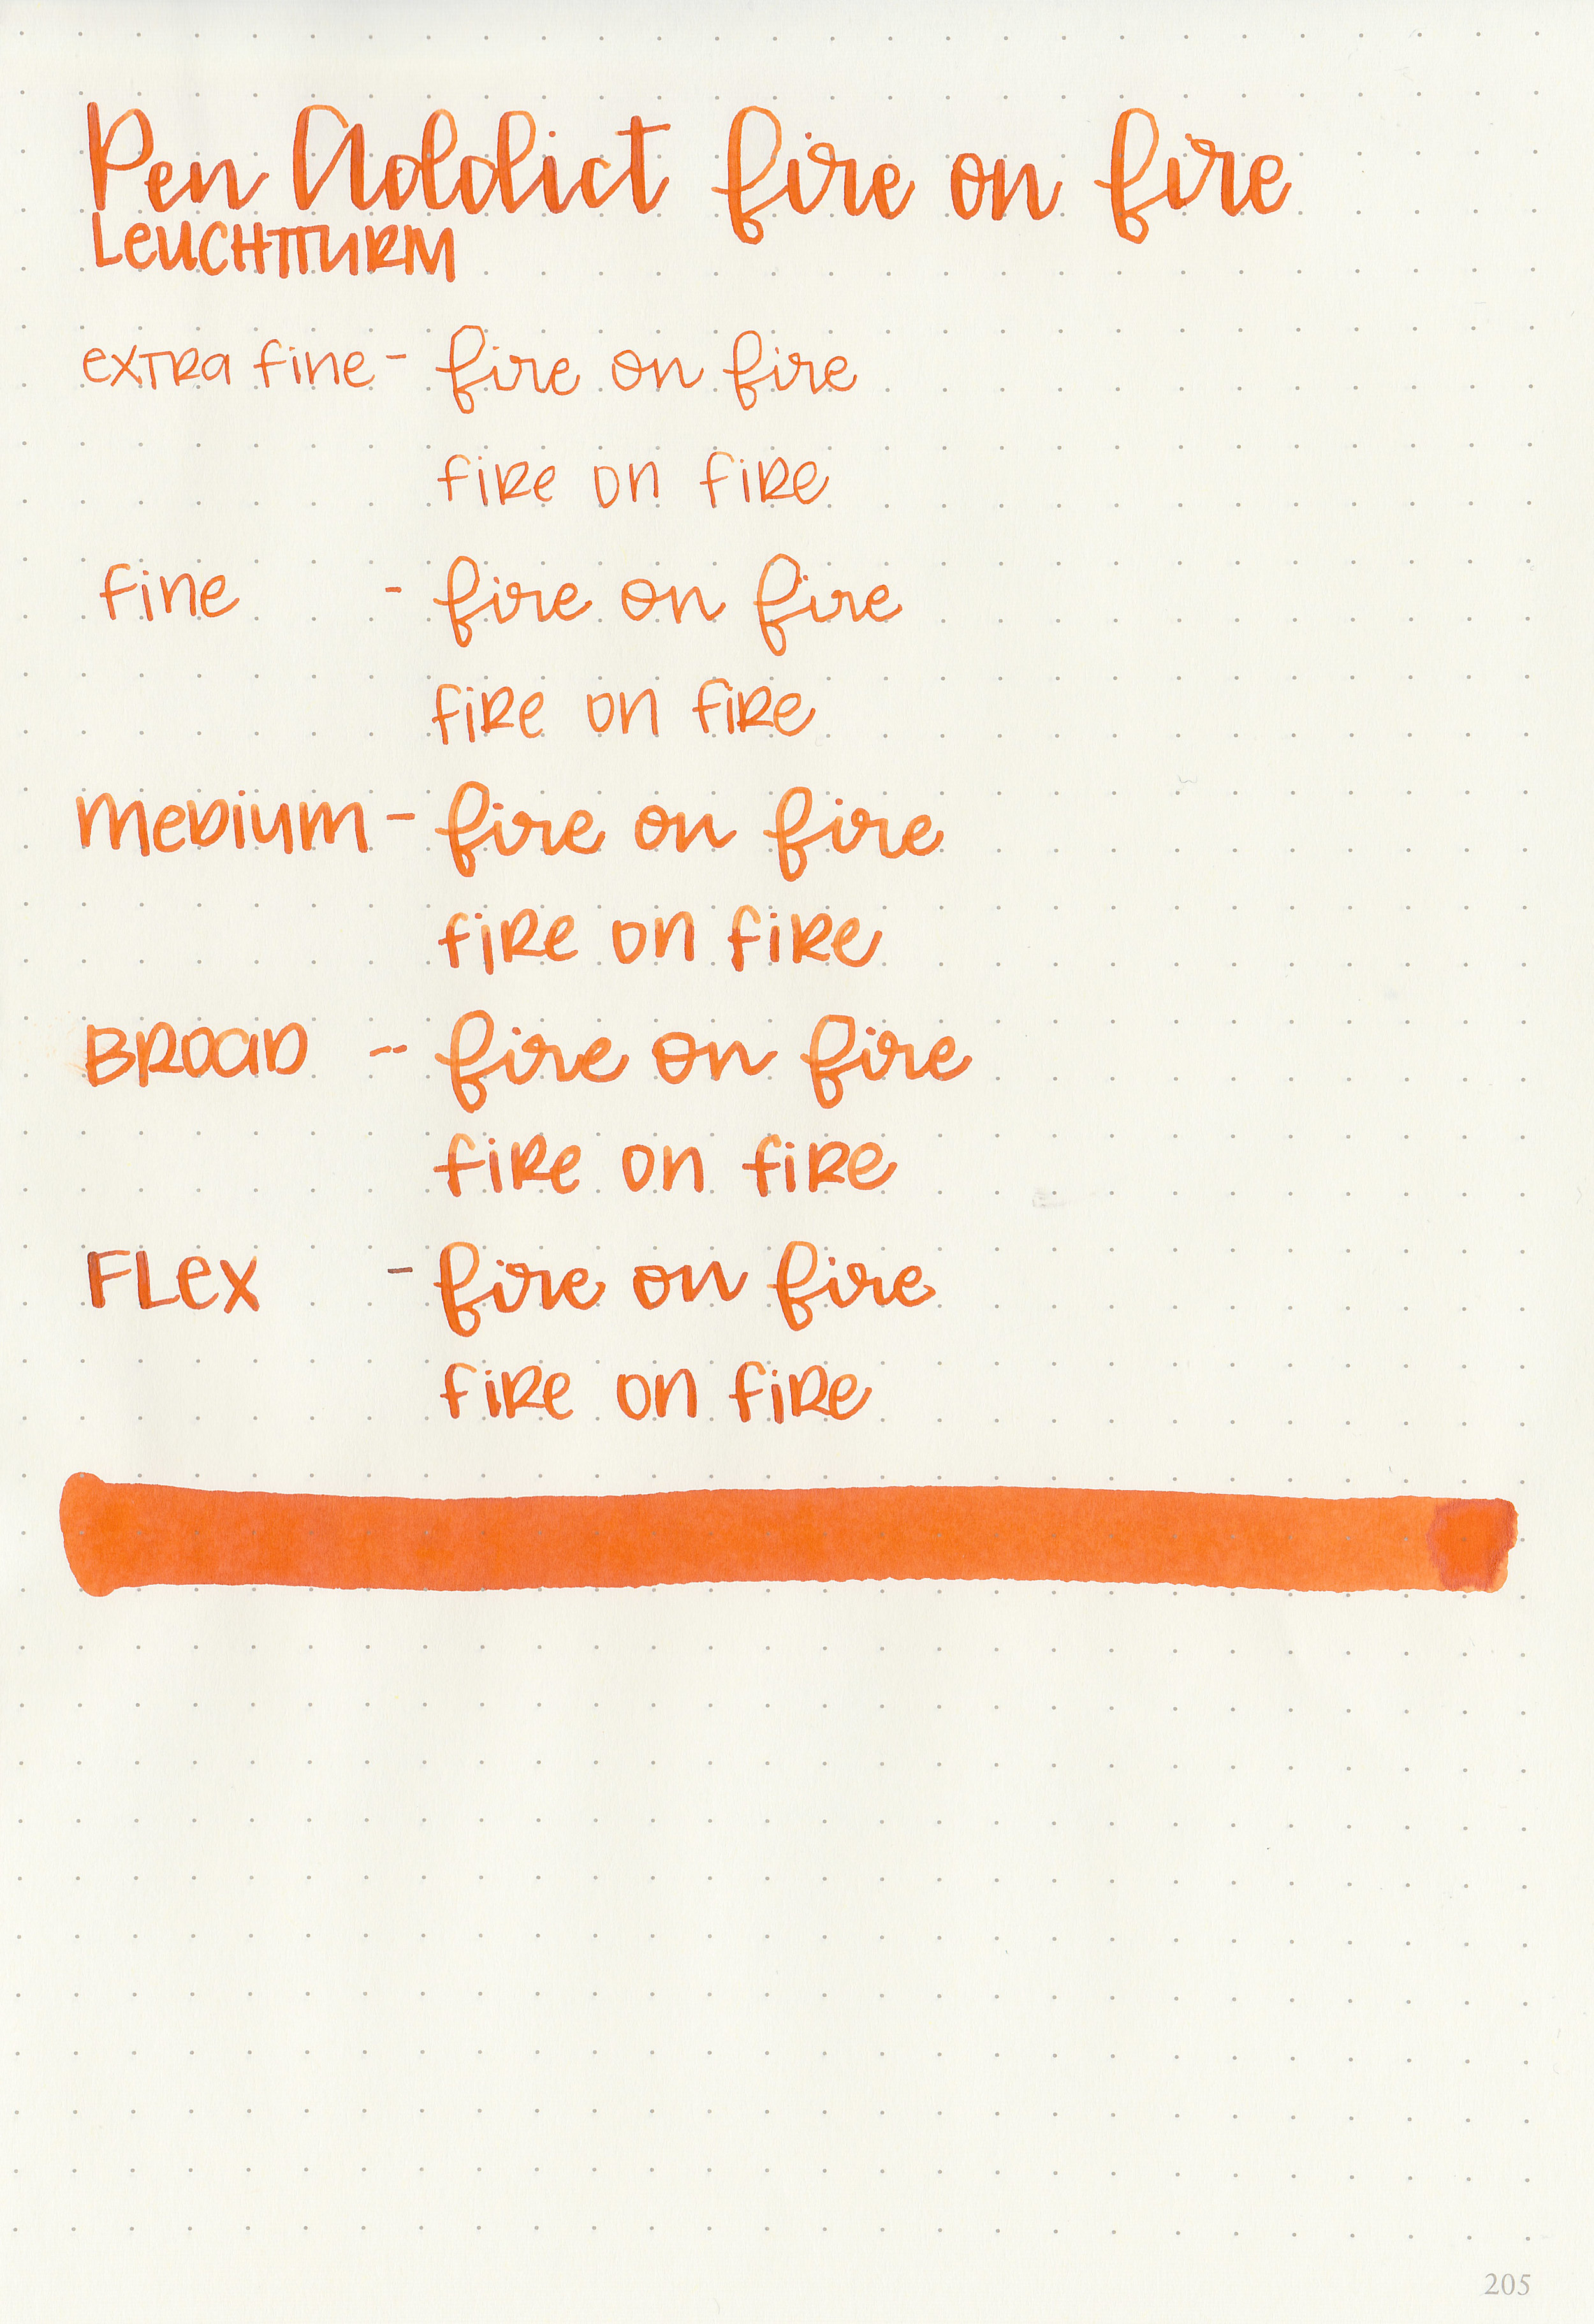 Pen Addict fire on fire
LEUCHTTURM
extra fine - fire on fire
fire on fire
fine - fire on fire
fire on fire
medium - fire on fire
fire on fire
BROAD -- fire on fire
fire on fire
FLex - fire on fire
fire on fire
205